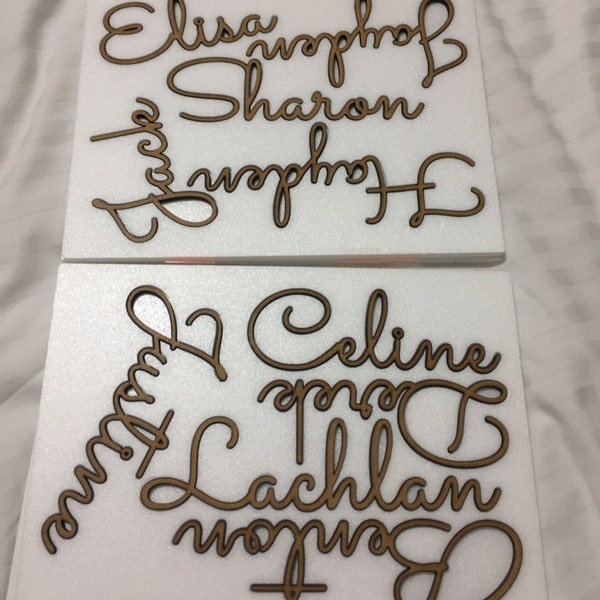 Elisa
Jayden
Sharon
Jack
Hayden
Celine
Justine
Derek
Lachlan
Benton